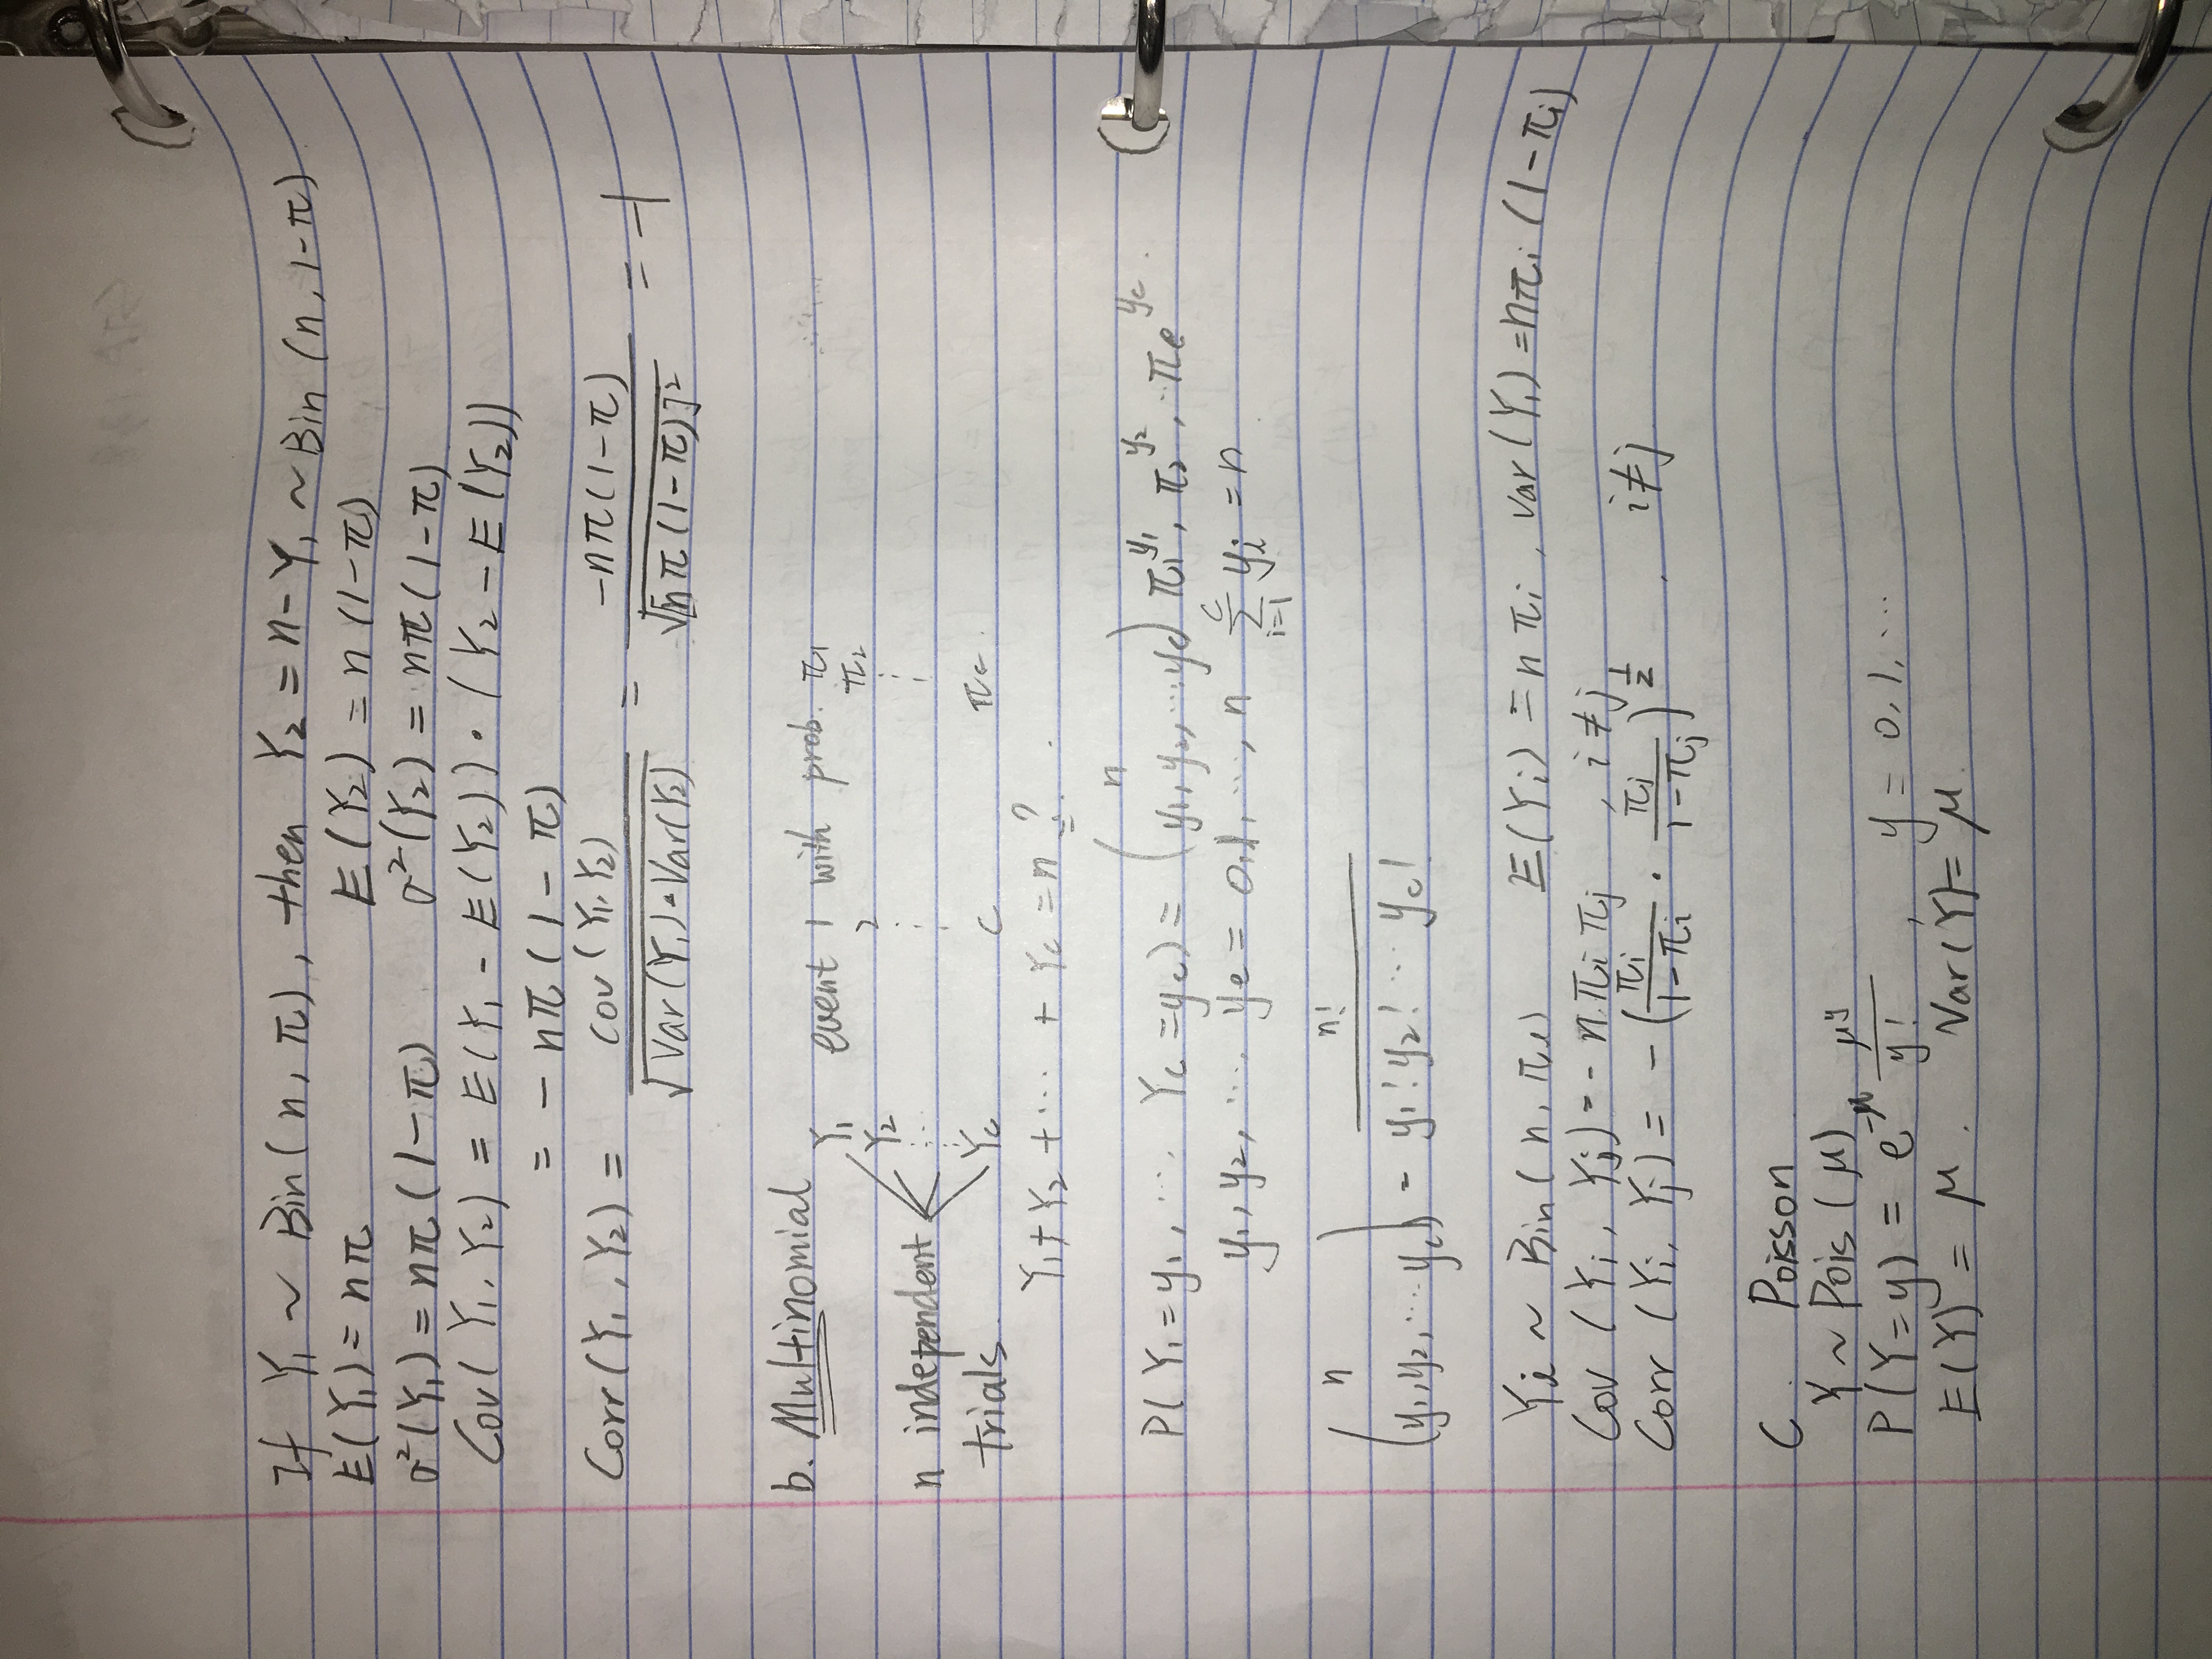 If Y₁ ~ Bin(n, π), then Y₂ = n-Y₁ ~ Bin (n, 1-π)
E(Y₁) = nπ E(Y₂) = n(1-π)
σ²(Y₁) = nπ(1-π) σ²(Y₂) = nπ(1-π)
Cov(Y₁, Y₂) = E(Y₁ - E(Y₂))·(Y₂ - E(Y₂))
= - nπ(1-π)
Corr(Y₁, Y₂) = cov(Y₁, Y₂) / √(Var(Y₁)·Var(Y₂)) = -nπ(1-π) / √[nπ(1-π)]² = -1
b. Multinomial
Y₁ event 1 with prob. π₁
Y₂ 2 π₂
n independent ⋮ ⋮ ⋮
trials Yc c πc.
Y₁ + Y₂ + ··· + Yc = n ?
P(Y₁ = y₁, ··· Yc = yc) = (n / y₁, y₂, ··· yc) π₁^y₁, π₂^y₂, ··πe^yc.
y₁, y₂, ··· ye = 0,1, ···, n Σ_{i=1}^{c} yi = n
(n / y₁, y₂, ··· yc) = n! / y₁! y₂! ··· yc!
Yi ~ Bin(n, πi) E(Yi) = nπi, var(Yi) = nπi(1-πi)
Cov(Yi, Yj) = - nπiπj, i≠j
Corr(Yi, Yj) = -(πi/(1-πi) · πj/(1-πj))^{1/2}, i≠j
C. Poisson
Y ~ Pois(μ)
P(Y=y) = e^{-μ} μ^y / y!, y = 0, 1, ···
E(Y) = μ. Var(Y) = μ.